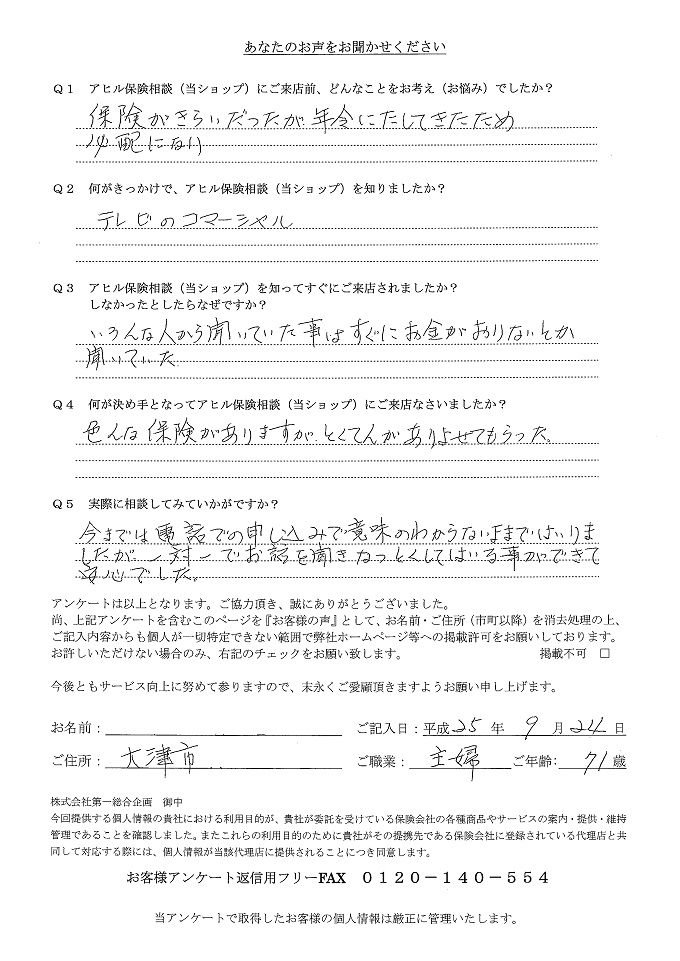 あなたのお声をお聞かせください
Q1 アヒル保険相談（当ショップ）にご来店前、どんなことをお考え（お悩み）でしたか？
保険がきらいだったが年令にたしてきたため
心配になり
Q2 何がきっかけで、アヒル保険相談（当ショップ）を知りましたか？
テレビのコマーシャル
Q3 アヒル保険相談（当ショップ）を知ってすぐにご来店されましたか？
しなかったとしたらなぜですか？
いろんな人から聞いていた事はすぐにお金がおりないとか
聞いていた
Q4 何が決め手となってアヒル保険相談（当ショップ）にご来店なさいましたか？
色んな保険がありますが、とくてんがありよせてもらった。
Q5 実際に相談してみていかがですか？
今までは電話での申し込みで意味のわからないままではいりま
したが一対一でお話を聞きなっとくしてはいる事ができて
安心でした。
アンケートは以上となります。ご協力頂き、誠にありがとうございました。
尚、上記アンケートを含むこのページを『お客様の声』として、お名前・ご住所（市町以降）を消去処理の上、
ご記入内容からも個人が一切特定できない範囲で弊社ホームページ等への掲載許可をお願いしております。
お許しいただけない場合のみ、右記のチェックをお願い致します。 掲載不可 □
今後ともサービス向上に努めて参りますので、末永くご愛顧頂きますようお願い申し上げます。
お名前： ご記入日：平成25年 9月24日
ご住所： 大津市 ご職業： 主婦 ご年齢： 71歳
株式会社第一総合企画 御中
今回提供する個人情報の貴社における利用目的が、貴社が委託を受けている保険会社の各種商品やサービスの案内・提供・維持
管理であることを確認しました。またこれらの利用目的のために貴社がその提携先である保険会社に登録されている代理店と共
同して対応する際には、個人情報が当該代理店に提供されることにつき同意します。
お客様アンケート返信用フリーFAX ０１２０－１４０－５５４
当アンケートで取得したお客様の個人情報は厳正に管理いたします。